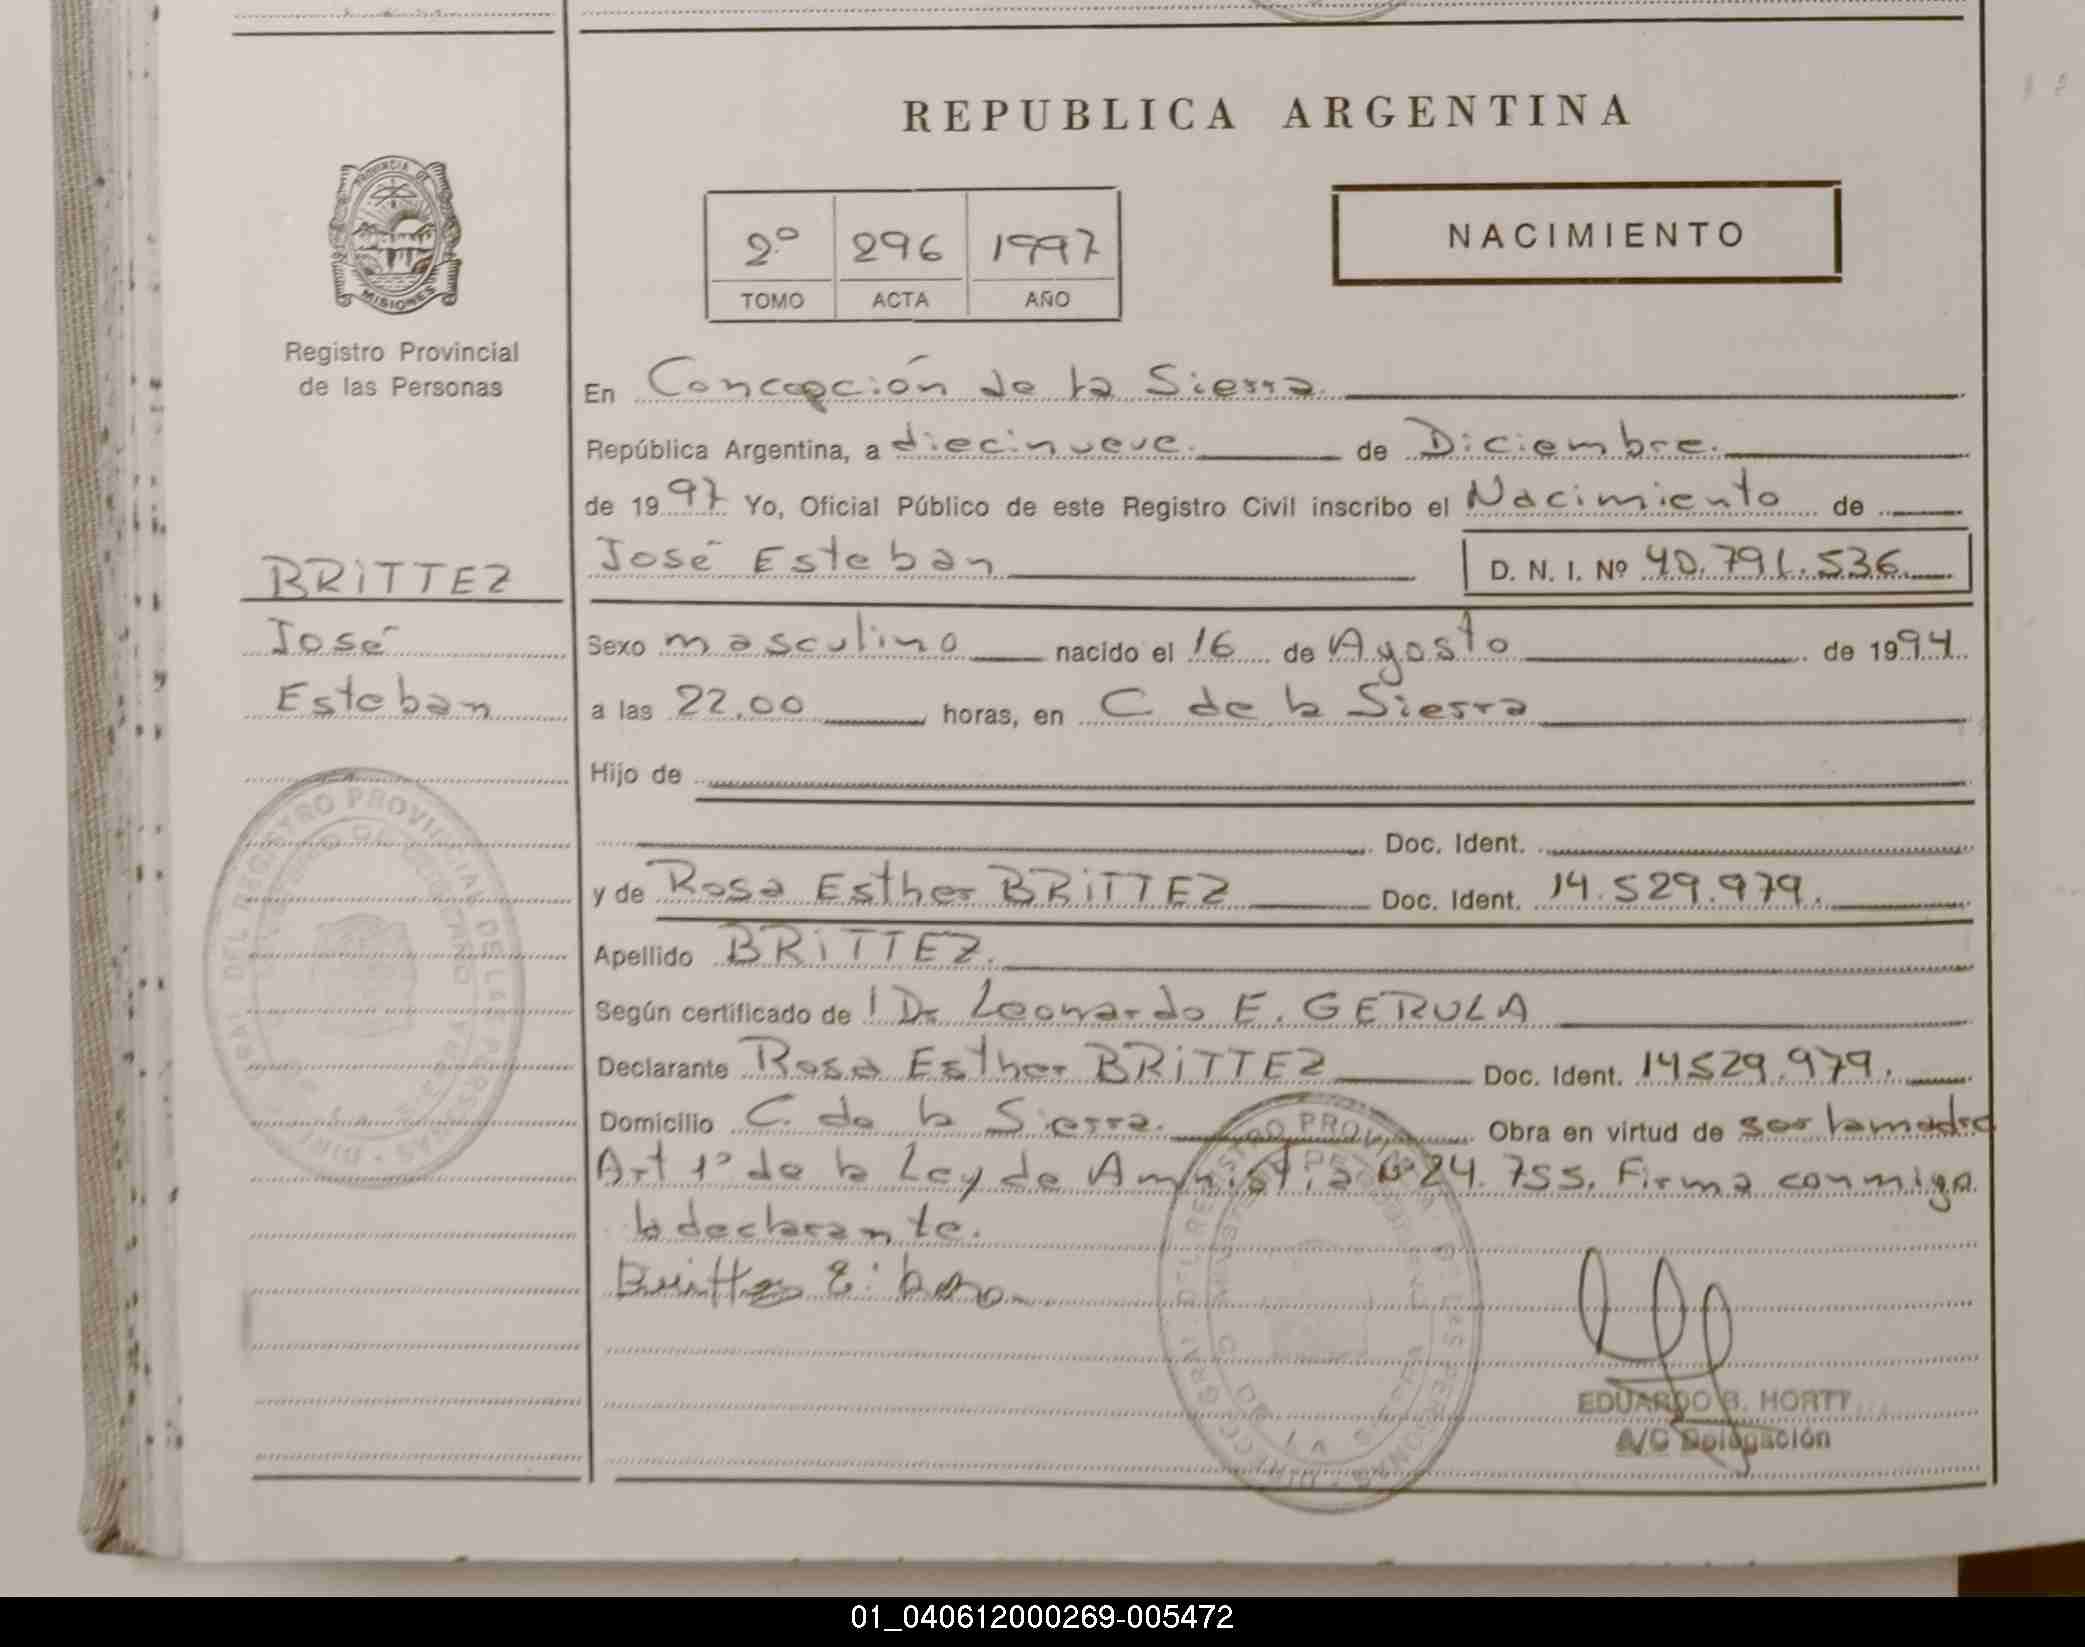 REPUBLICA ARGENTINA
PROVINCIA DE
MISIONES
Registro Provincial
de las Personas
2º 296 1997
TOMO ACTA AÑO
NACIMIENTO
En Concepción de la Sierra
República Argentina, a diecinueve. de Diciembre.
de 1997 Yo, Oficial Público de este Registro Civil inscribo el Nacimiento de
José Esteban D. N. I. Nº 40.791.536.
BRITTEZ
José
Esteban
Sexo masculino nacido el 16 de Agosto de 1994
a las 22.00 horas, en C de la Sierra
Hijo de
Doc. Ident.
y de Rosa Esther BRITTEZ Doc. Ident. 14.529.979.
Apellido BRITTEZ.
Según certificado de Dr Leonardo E. GERULA
Declarante Rosa Esther BRITTEZ Doc. Ident. 14529.979.
Domicilio C. de la Sierra. Obra en virtud de ser la madre
Art 1º de la Ley de Amnistia Nº 24.755. Firma conmigo
la declarante.
Brittez
EDUARDO B. HORTT
A/C Delegación
01_040612000269-005472